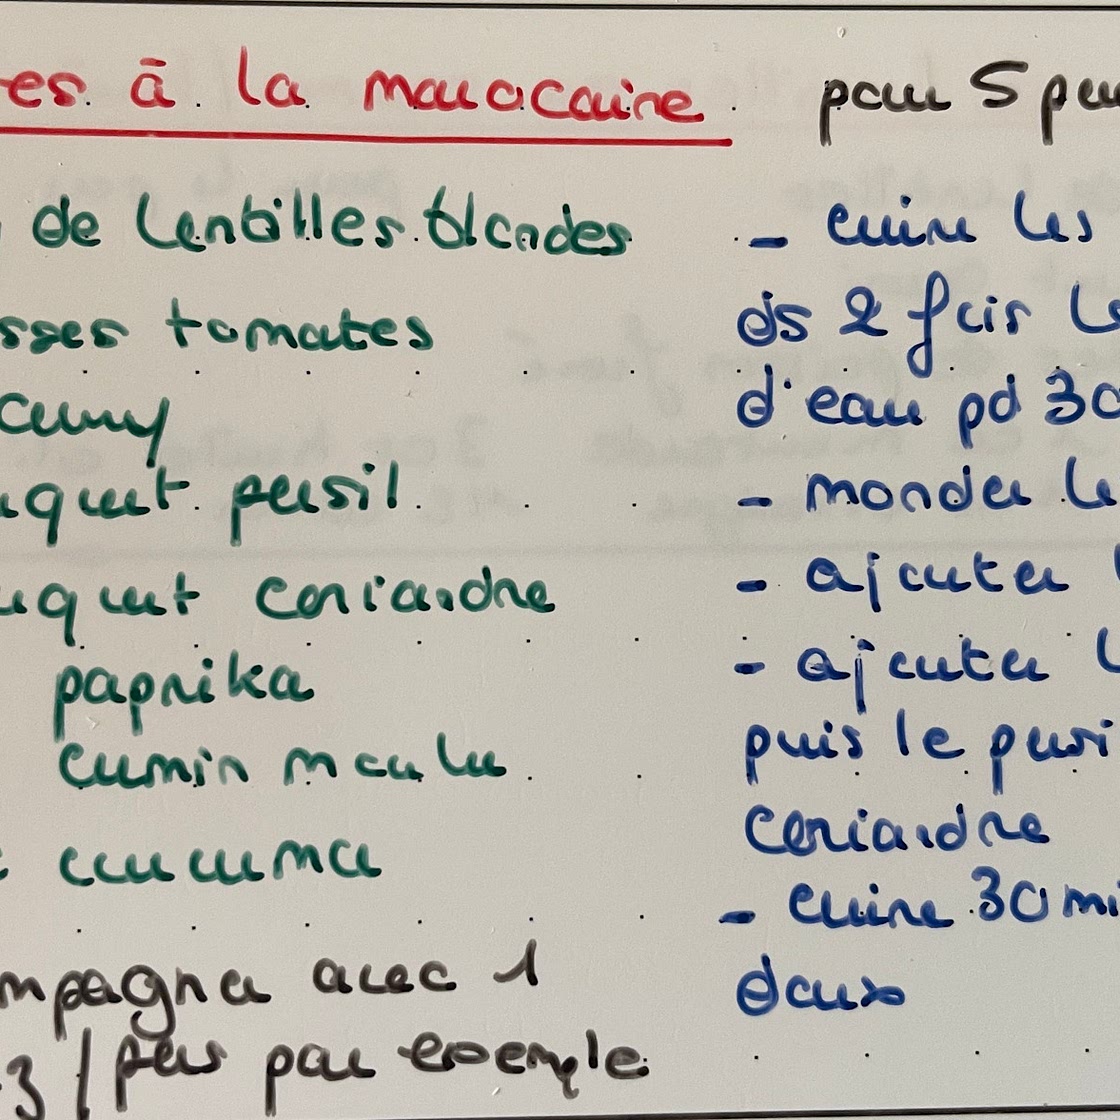 es à la marocaine
pour 5 per
de lentilles blondes
sses tomates
curry
uquet persil
uquet coriandre
paprika
cumin moulu
curcuma
mpagner avec 1
3 / pers par exemple
- cuire les
ds 2 fois le
d'eau pd 30
- monder le
- ajouter
- ajouter
puis le persi
coriandre
- cuire 30 mi
doux